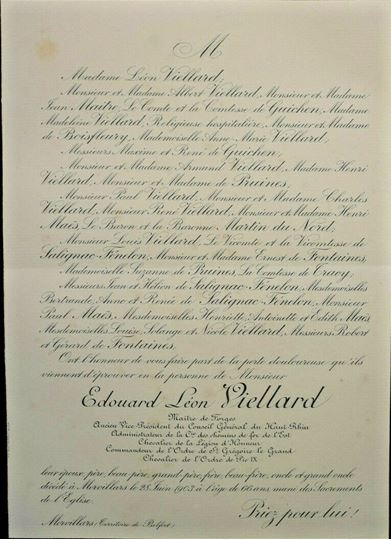 M
Madame Léon Viellard,
Monsieur et Madame Albert Viellard, Monsieur et Madame
Jean Maître, Le Comte et la Comtesse de Guichen, Madame
Madeleine Viellard, Religieuse hospitalière, Monsieur et Madame
de Boisfleury, Mademoiselle Anne-Marie Viellard,
Messieurs Maxime et René de Guichen,
Monsieur et Madame Armand Viellard, Madame Henri
Viellard, Monsieur et Madame de Pruines,
Monsieur Paul Viellard, Monsieur et Madame Charles
Viellard, Monsieur René Viellard, Monsieur et Madame Henri
Maës, Le Baron et la Baronne Martin du Nord,
Monsieur Louis Viellard, Le Vicomte et la Vicomtesse de
Salignac-Fénelon, Monsieur et Madame Ernest de Fontaines,
Mademoiselle Suzanne de Pruines, La Comtesse de Tracy,
Messieurs Jean et Hélion de Salignac-Fénelon, Mesdemoiselles
Bertrande, Anne et Renée de Salignac-Fénelon, Monsieur
Paul Maës, Mesdemoiselles Henriette, Antoinette et Edith Maës,
Mesdemoiselles Louise, Solange et Nicole Viellard, Messieurs Robert
et Gérard de Fontaines,
Ont l'honneur de vous faire part de la perte douloureuse qu'ils
viennent d'éprouver en la personne de Monsieur
Edouard Léon Viellard
Maître de Forges
Ancien Vice-Président du Conseil Général du Haut-Rhin
Administrateur de la Cie des chemins de fer de l'Est
Chevalier de la Légion d'Honneur
Commandeur de l'Ordre de St Grégoire le Grand
Chevalier de l'Ordre de Pie IX
leur époux, père, beau-père, grand-père, frère, beau-frère, oncle et grand oncle
décédé à Morvillars le 28 Juin 1903 à l'âge de 66 ans, muni des Sacrements
de l'Eglise.
Priez pour lui!
Morvillars (Territoire de Belfort)